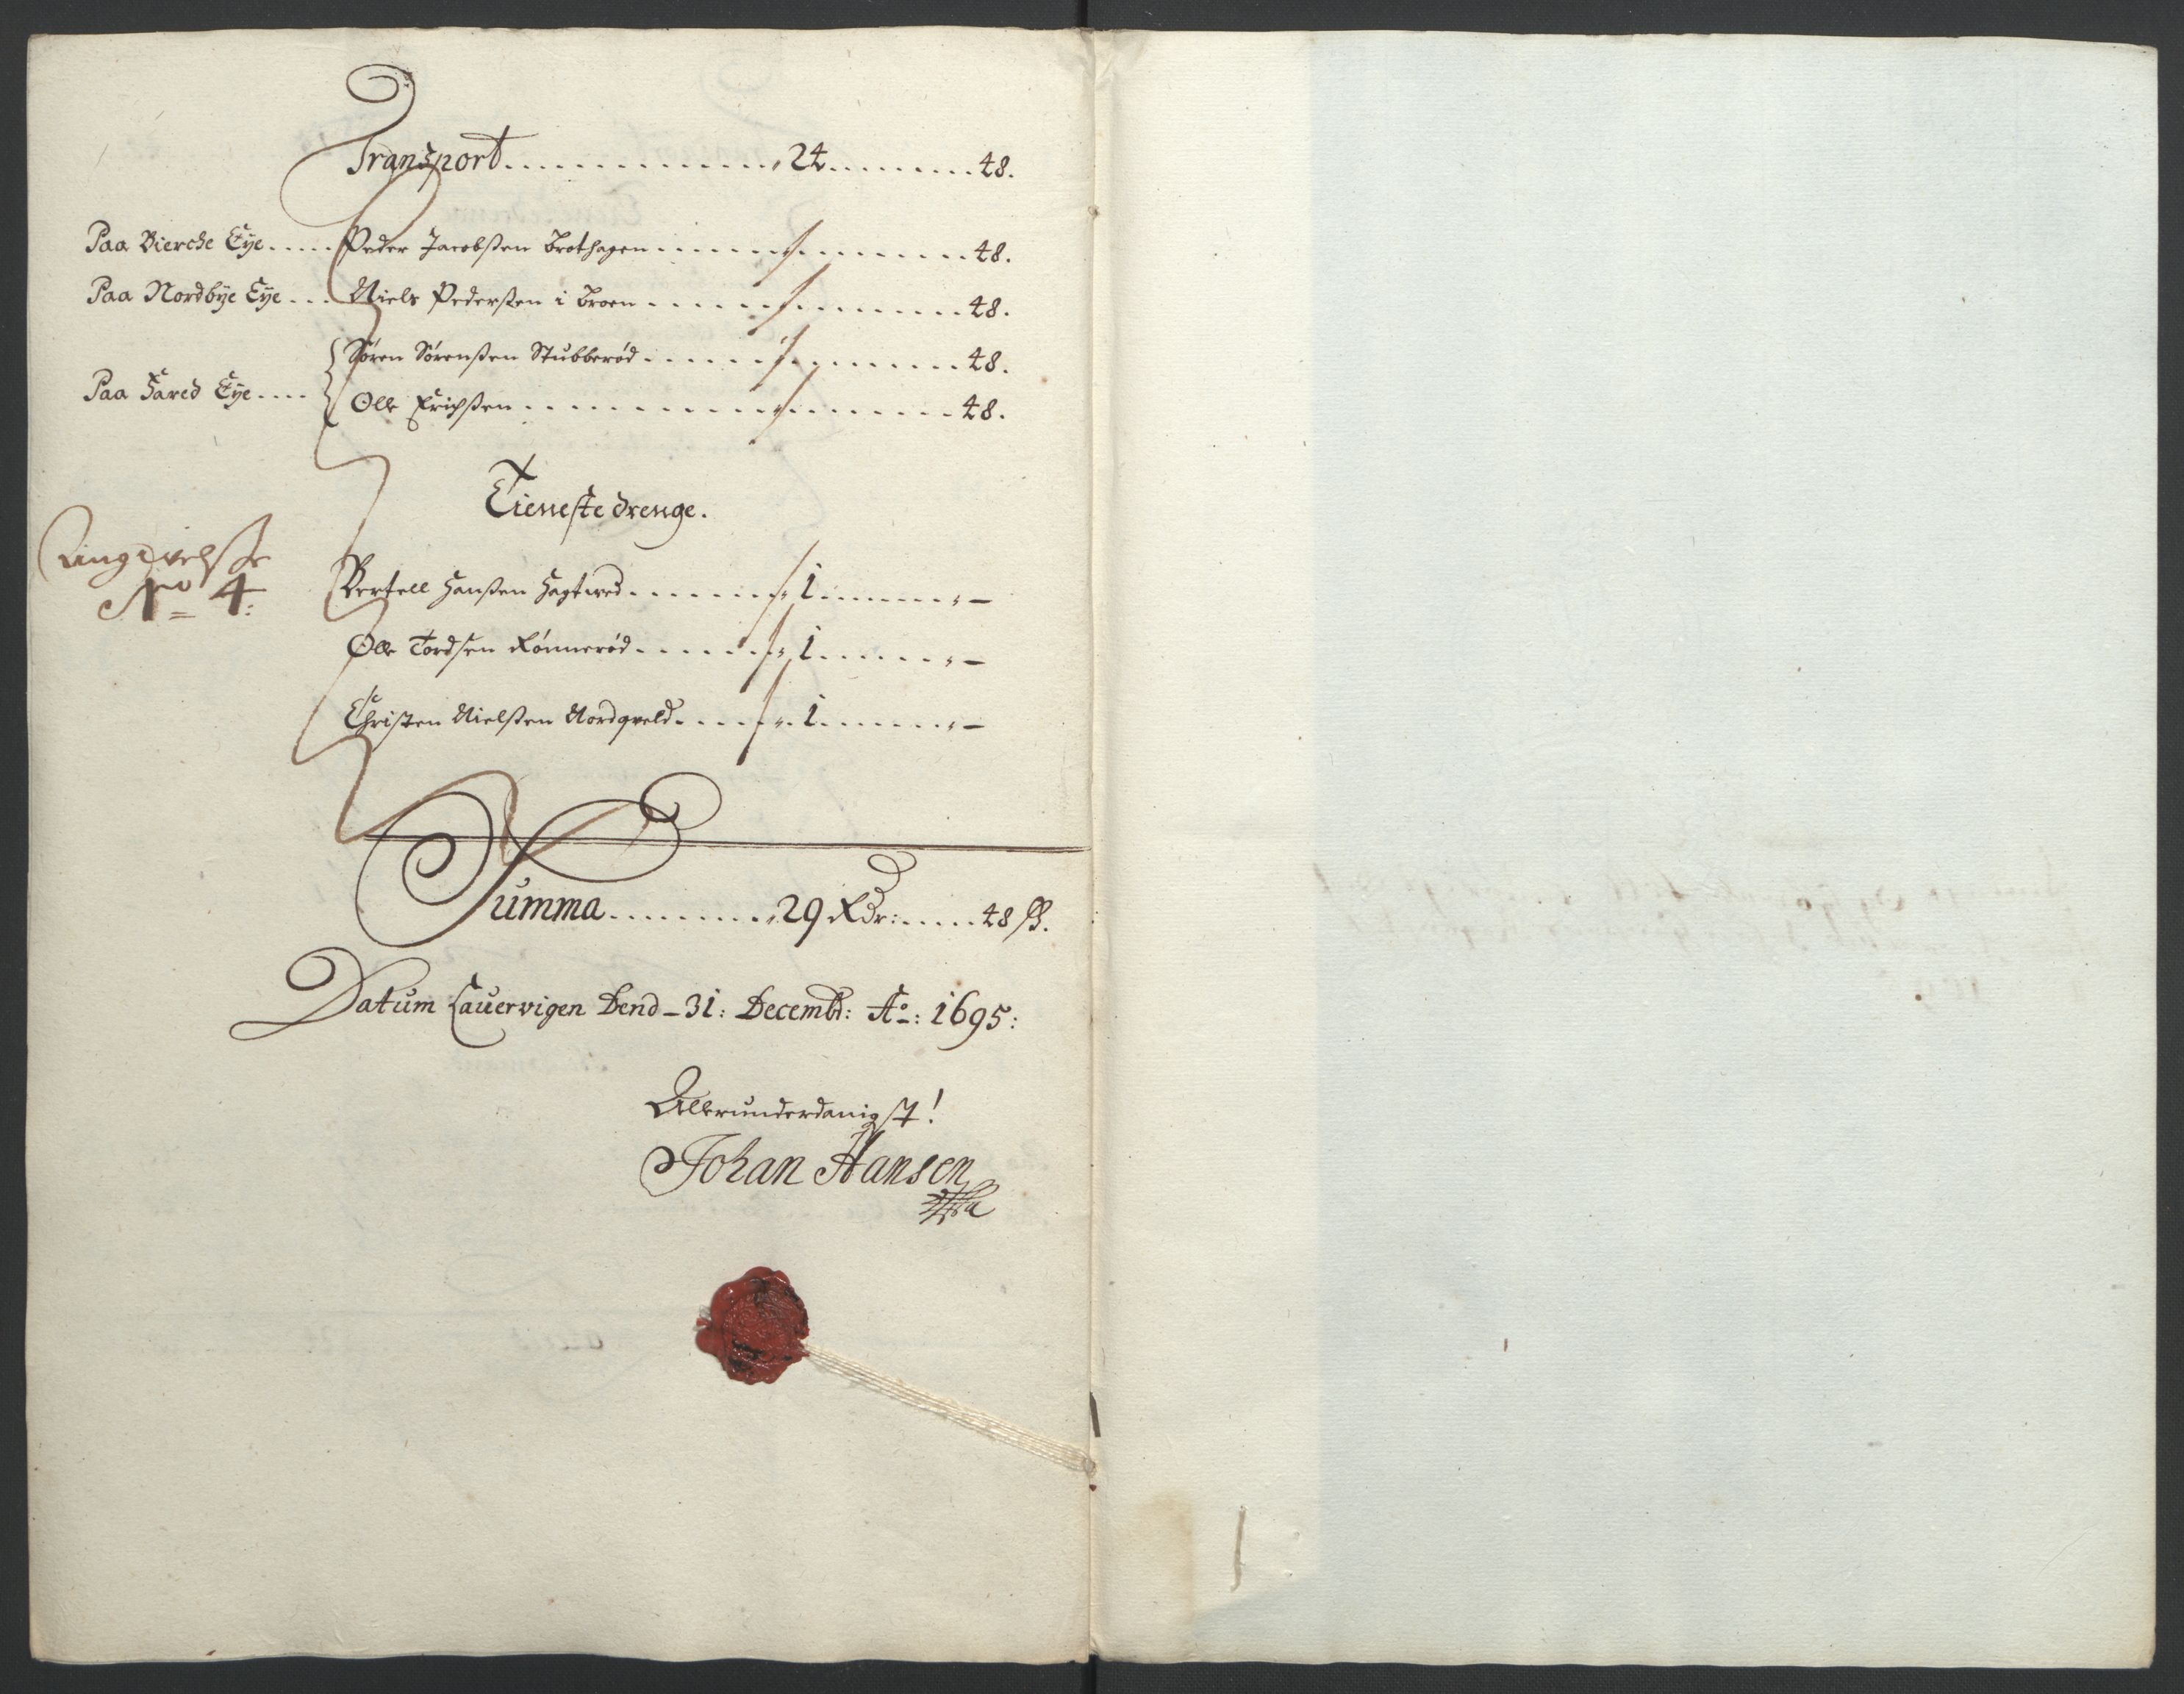 Transport ............. 24 ........ 48.
Paa Bierche Eye ..... Peder Jacobsen Brothagen ............ 48.
Paa Nordbÿe Eÿe ... Niels Pedersen i Broen ............ 48.
Søren Sørensen Stubberød ............ 48.
Paa Fared Eÿe .... Olle Erichsen ............ 48.
Tieneste drenge.
Angivelsse
No 4:
Bertell Hansen ........ 1 ........ —
Olle Tordsen Rønnerød ........ 1 ........ —
Christen Nielsen Nordqveld ........ 1 ........ —
Summa ......... 29 Rdr: ..... 48 ß.
Datum Lauervigen Dend 31: Decembr: Ao: 1695:
Allerunderdanigst!
Johan Hansen